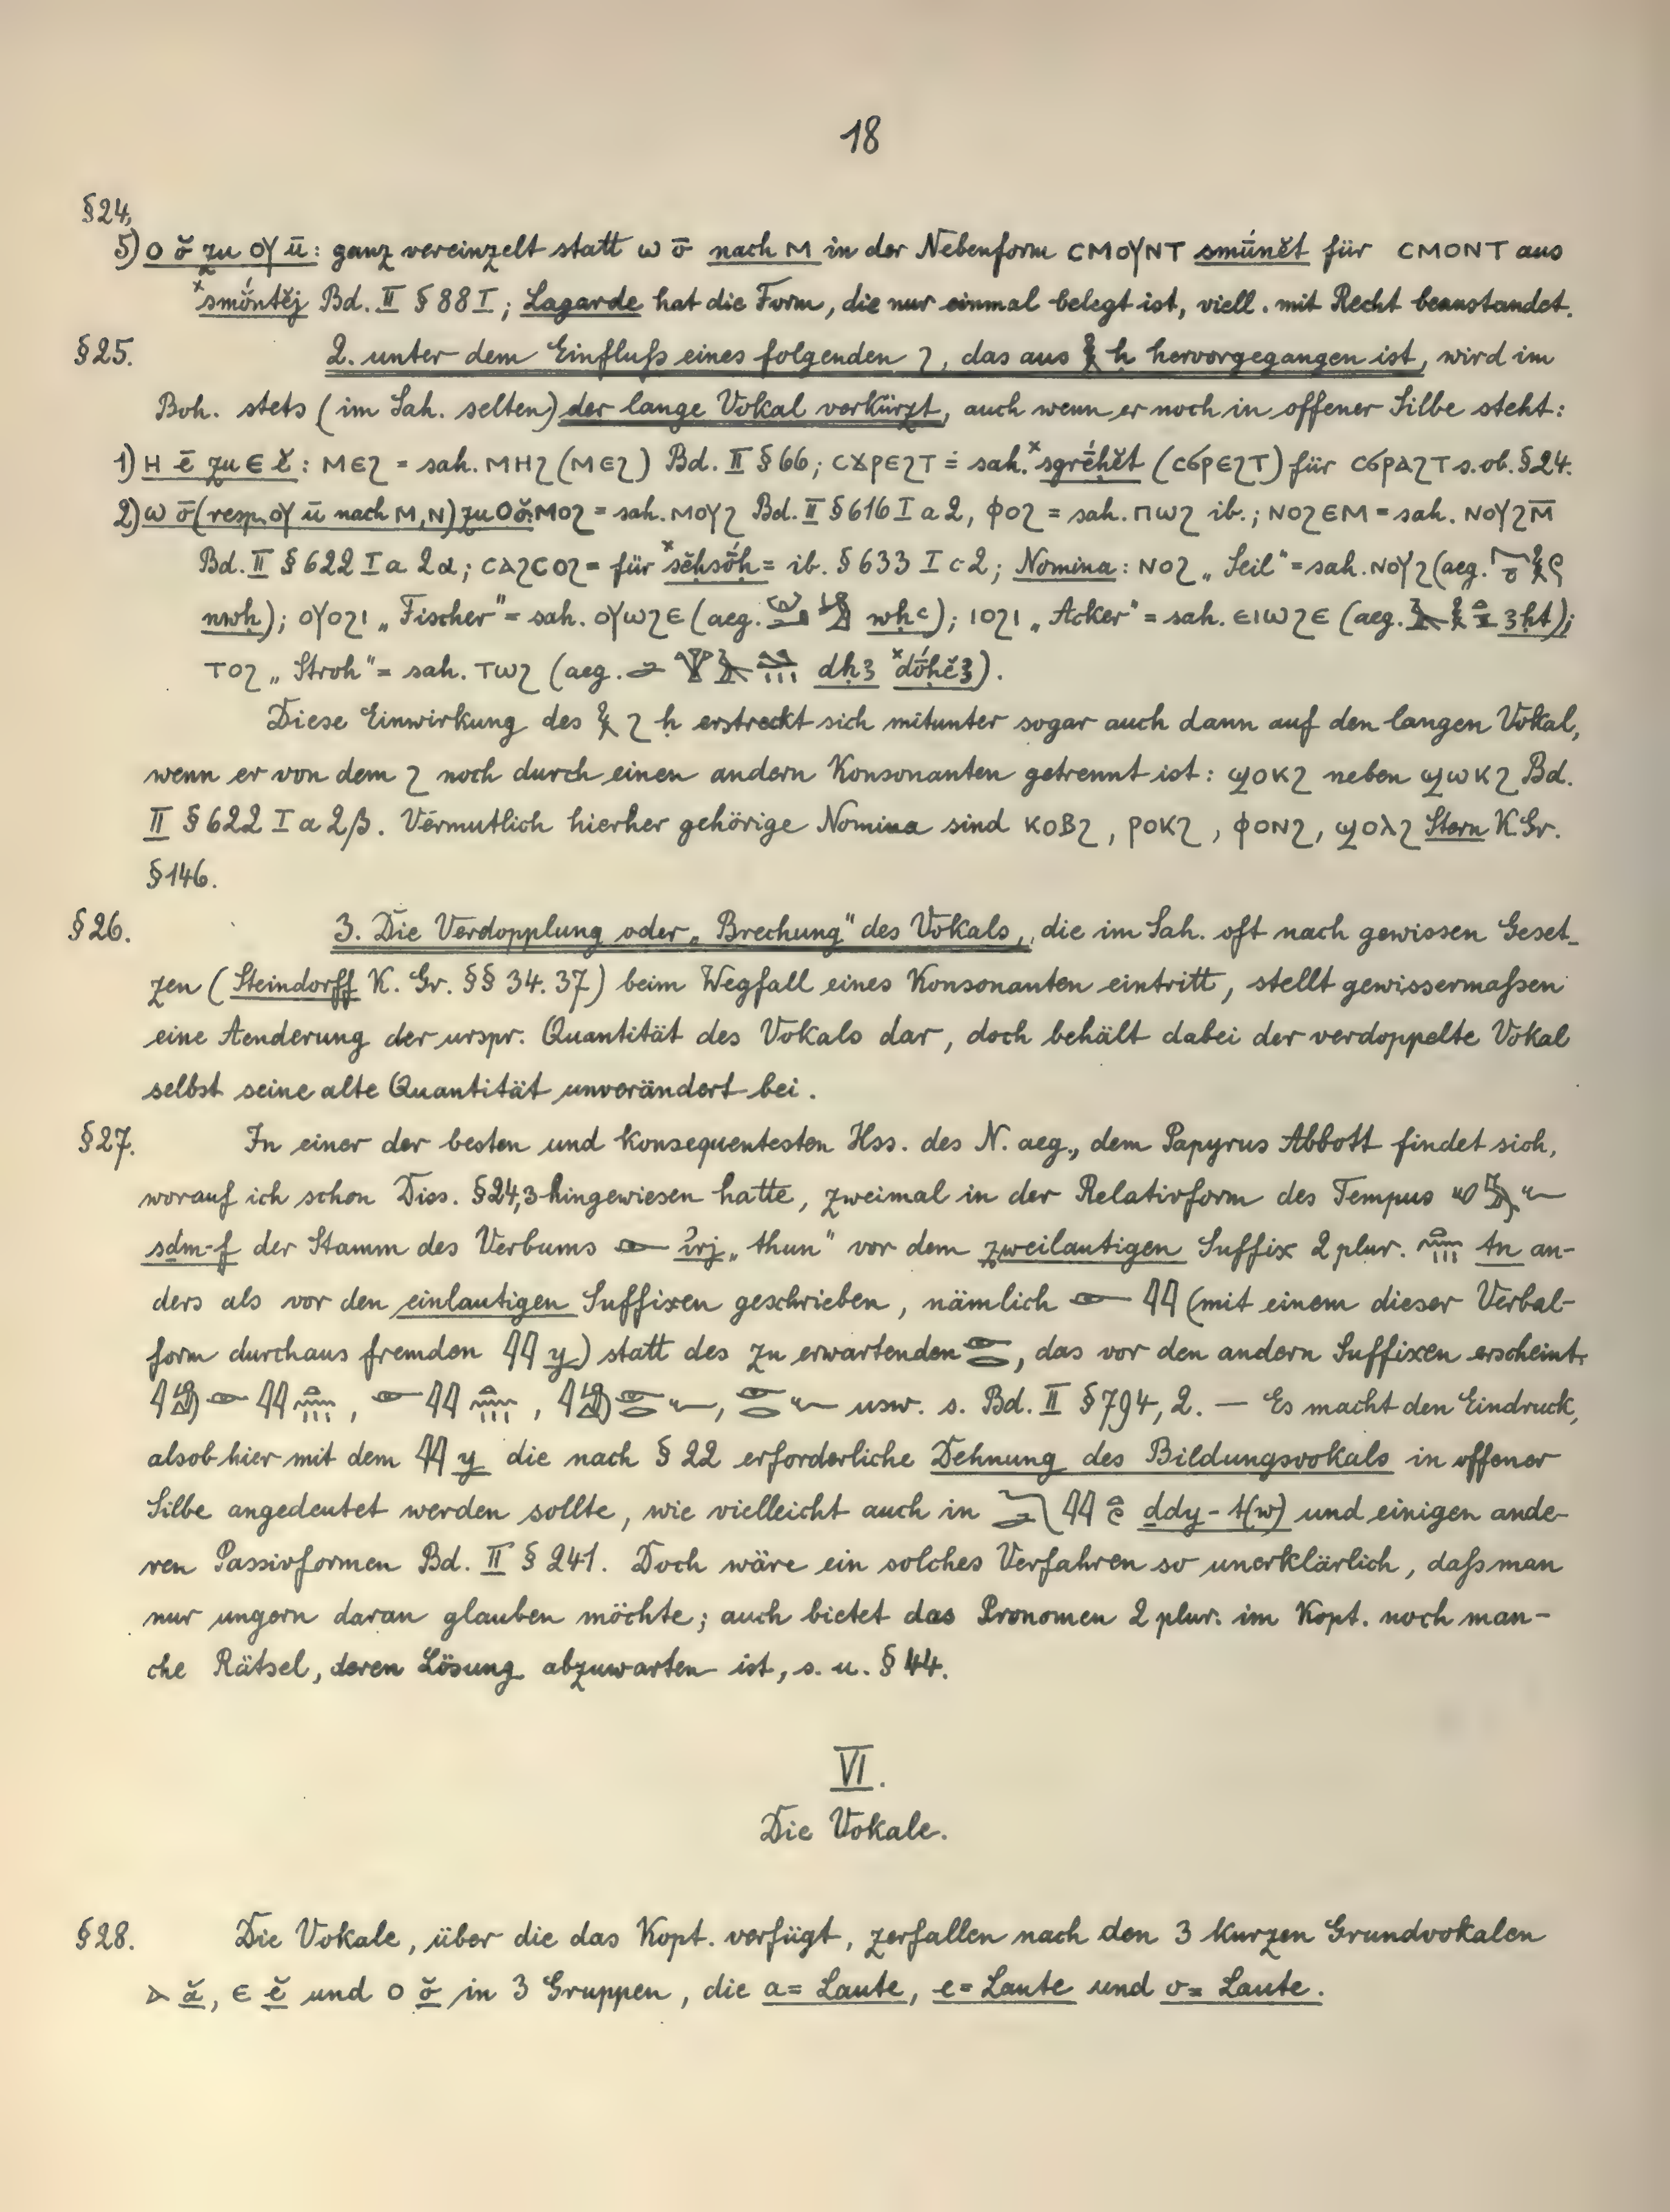 18
§24,
5) ⲟ ŏ zu ⲟⲩ ū: ganz vereinzelt statt ⲱ ō nach ⲙ in der Nebenform ⲥⲙⲟⲩⲛⲧ smūńĕt für ⲥⲙⲟⲛⲧ aus
ˣsmŏ́ntĕj Bd. II § 88 I; Lagarde hat die Form, die nur einmal belegt ist, viell. mit Recht beanstandet.
§25. 2. unter dem Einfluß eines folgenden ϩ, das aus 𓎛 ḥ hervorgegangen ist, wird im
Boh. stets (im Sah. selten) der lange Vokal verkürzt, auch wenn er noch in offener Silbe steht:
1) ⲏ ē zu ⲉ ĕ: ⲙⲉϩ = sah. ⲙⲏϩ (ⲙⲉϩ) Bd. II § 66; ⲥϫⲣⲉϩⲧ = sah. ˣsgréḥĕt (ⲥϭⲣⲉϩⲧ) für ⲥϭⲣⲁϩⲧ s. ob. § 24.
2) ⲱ ō (resp. ⲟⲩ ū nach ⲙ, ⲛ) zu ⲟ ŏ: ⲙⲟϩ = sah. ⲙⲟⲩϩ Bd. II § 616 I a 2, ⲫⲟϩ = sah. ⲡⲱϩ ib.; ⲛⲟϩⲉⲙ = sah. ⲛⲟⲩϩⲙ̄
Bd. II § 622 I a 2α; ⲥⲁϩⲥⲟϩ= für ˣsĕḥsṓḥ= ib. § 633 I c 2; Nomina: ⲛⲟϩ „Seil" = sah. ⲛⲟⲩϩ (aeg.
nwḥ); ⲟⲩⲟϩⲓ „Fischer" = sah. ⲟⲩⲱϩⲉ (aeg. wḥꜥ); ⲓⲟϩⲓ „Acker" = sah. ⲉⲓⲱϩⲉ (aeg. ꜣḥt);
ⲧⲟϩ „Stroh" = sah. ⲧⲱϩ (aeg. dḥꜣ ˣdṓḥĕꜣ).
Diese Einwirkung des 𓎛 ϩ ḥ erstreckt sich mitunter sogar auch dann auf den langen Vokal,
wenn er von dem ϩ noch durch einen andern Konsonanten getrennt ist: ϣⲟⲕϩ neben ϣⲱⲕϩ Bd.
II § 622 I a 2β. Vermutlich hierher gehörige Nomina sind ⲕⲟⲃϩ, ⲣⲟⲕϩ, ⲫⲟⲛϩ, ϣⲟⲗϩ Stern K. Gr.
§ 146.
§26. 3. Die Verdopplung oder „Brechung" des Vokals, die im Sah. oft nach gewissen Geset-
zen (Steindorff K. Gr. §§ 34. 37) beim Wegfall eines Konsonanten eintritt, stellt gewissermaßen
eine Aenderung der urspr. Quantität des Vokals dar, doch behält dabei der verdoppelte Vokal
selbst seine alte Quantität unverändert bei.
§27. In einer der besten und konsequentesten Hss. des N. aeg., dem Papyrus Abbott findet sich,
worauf ich schon Diss. §24,3 hingewiesen hatte, zweimal in der Relativform des Tempus
sḏm-f der Stamm des Verbums 𓁹 ỉrj „thun" vor dem zweilautigen Suffix 2 plur. tn an-
ders als vor den einlautigen Suffixen geschrieben, nämlich 𓁹 𓇌 (mit einem dieser Verbal-
form durchaus fremden 𓇌 y) statt des zu erwartenden 𓁹𓂋, das vor den andern Suffixen erscheint:
usw. s. Bd. II § 794, 2. — Es macht den Eindruck,
alsob hier mit dem 𓇌 y die nach § 22 erforderliche Dehnung des Bildungsvokals in offener
Silbe angedeutet werden sollte, wie vielleicht auch in ḏdy-t(w) und einigen ande-
ren Passivformen Bd. II § 241. Doch wäre ein solches Verfahren so unerklärlich, daß man
nur ungern daran glauben möchte; auch bietet das Pronomen 2 plur. im Kopt. noch man-
che Rätsel, deren Lösung abzuwarten ist, s. u. § 44.
VI.
Die Vokale.
§28. Die Vokale, über die das Kopt. verfügt, zerfallen nach den 3 kurzen Grundvokalen
ⲁ ă, ⲉ ĕ und ⲟ ŏ in 3 Gruppen, die a= Laute, e= Laute und o= Laute.